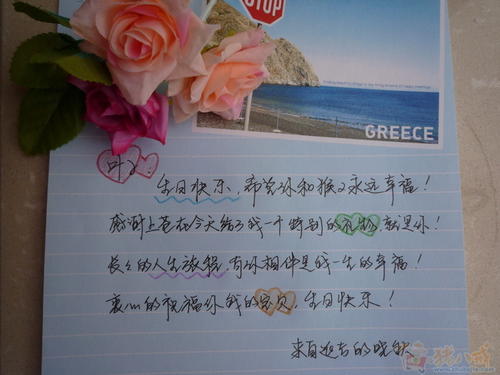 STOP
GREECE
叶子:
生日快乐,希望你和猴子永远幸福!
感谢上苍在今天给了我一个特别的礼物,就是你!
长长的人生旅程,有你相伴是我一生的幸福!
衷心的祝福你我的宝贝,生日快乐!
来自远方的晓
猪八戒